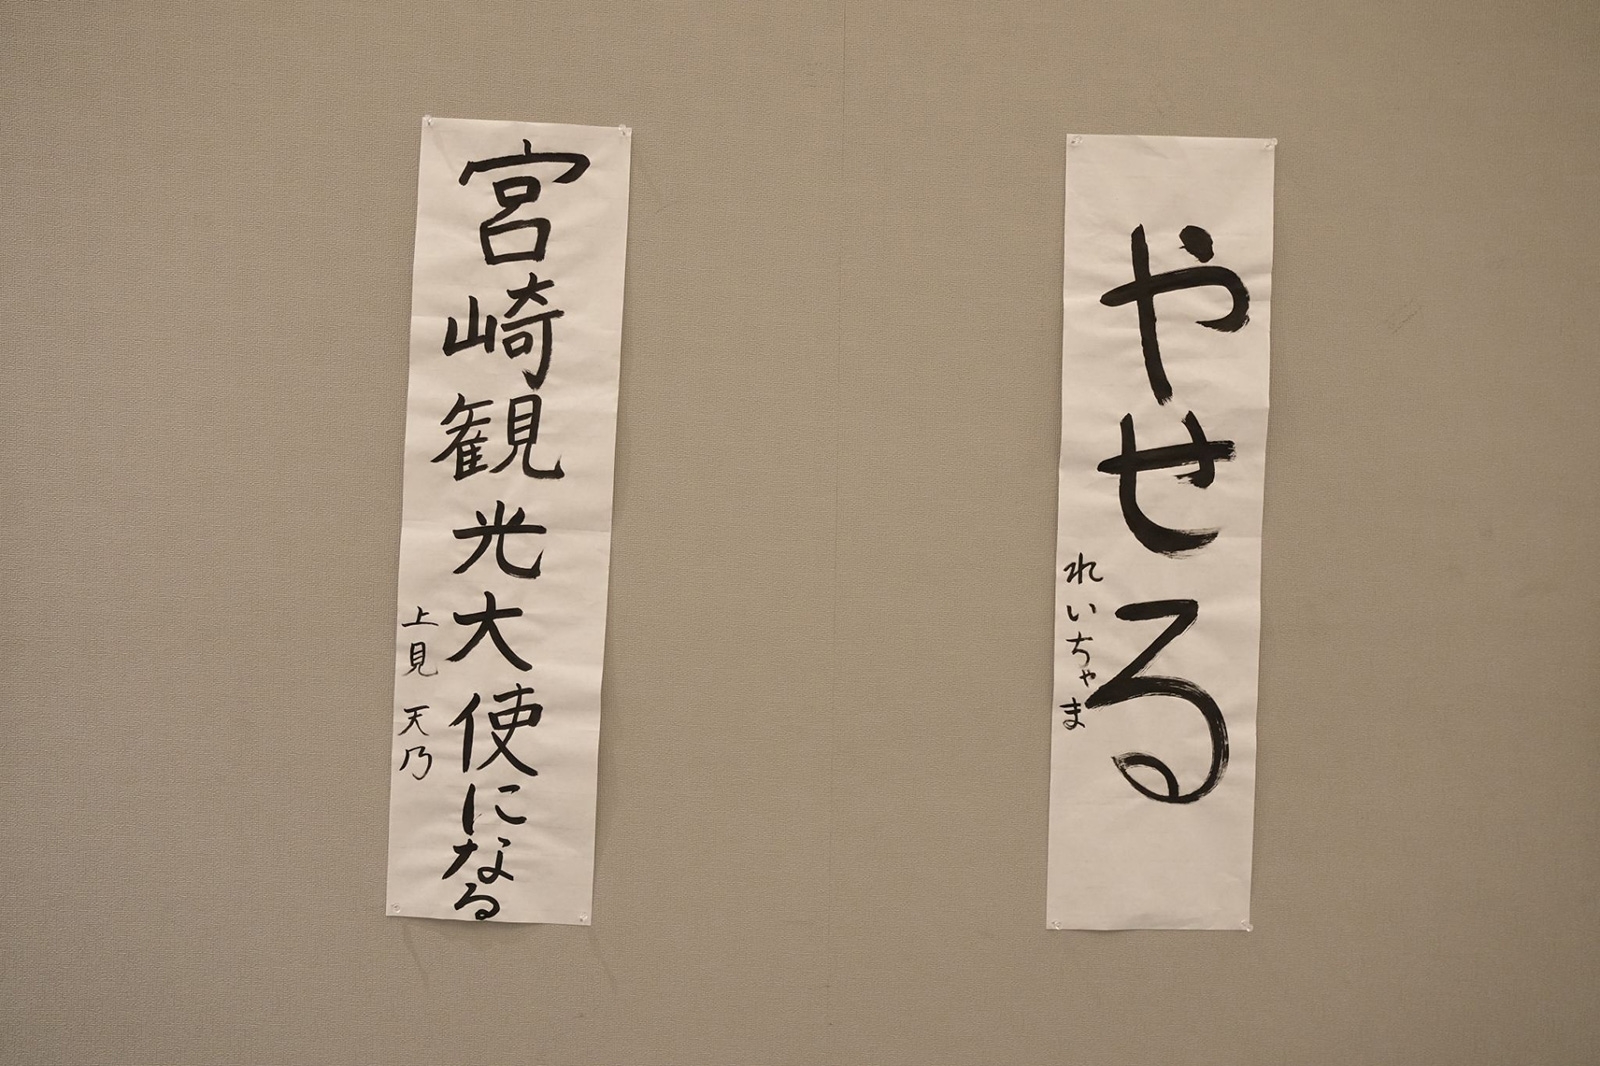 やせる
れいちゃま
宮崎観光大使になる
上見 天乃